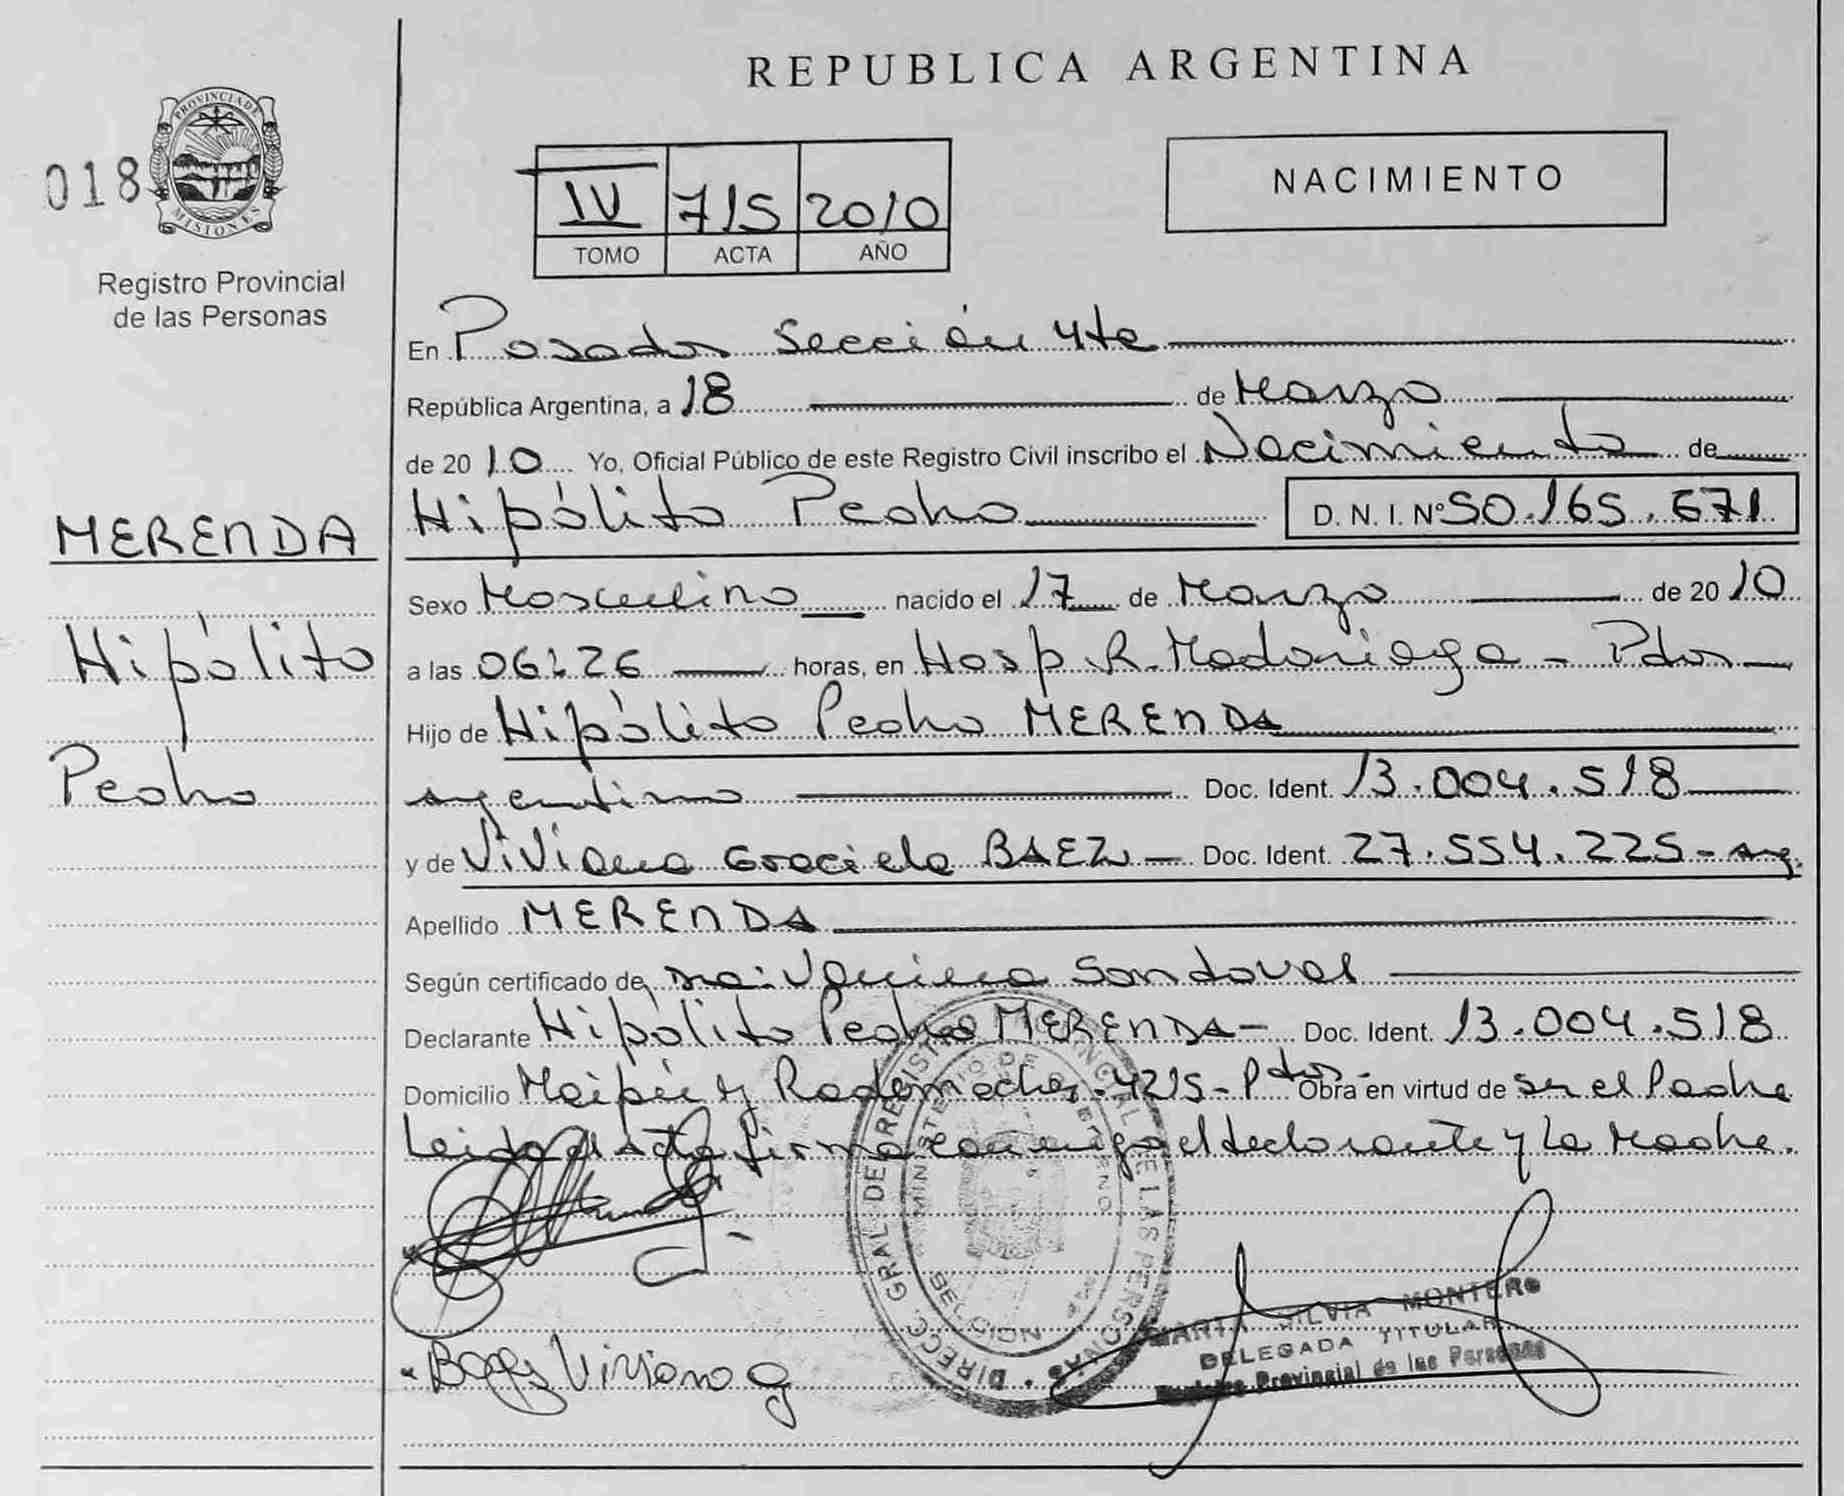 REPUBLICA ARGENTINA
PROVINCIA DE
MISIONES
018
Registro Provincial
de las Personas
IV 715 2010
TOMO ACTA AÑO
NACIMIENTO
En Posadas Sección 4ta
República Argentina, a 18 de Marzo
de 2010 Yo, Oficial Público de este Registro Civil inscribo el Nacimiento de
MERENDA
Hipólito
Pedro
Hipólito Pedro D. N. I. Nº 50.165.671
Sexo Masculino nacido el 17 de Marzo de 2010
a las 06:26 horas, en Hosp. R. Madariaga - Pdas
Hijo de Hipólito Pedro MERENDA
argentino Doc. Ident. 13.004.518
y de Viviana Graciela BAEZ - Doc. Ident. 27.554.225 - arg.
Apellido MERENDA
Según certificado de, Dra: Vanina Sandoval
Declarante Hipólito Pedro MERENDA - Doc. Ident. 13.004.518
Domicilio Maipú y Rademacher. 4215 - Pdas - Obra en virtud de ser el Padre
Leida el Acta firma conmigo el declarante y la Madre.
DIRECC. GRAL. DE REGISTRO PROVINCIAL DE LAS PERSONAS
MINISTERIO DE GOBIERNO
SECCION
Baez Viviana G
MARTA SILVIA MONTERO
DELEGADA TITULAR
Registro Provincial de las Personas